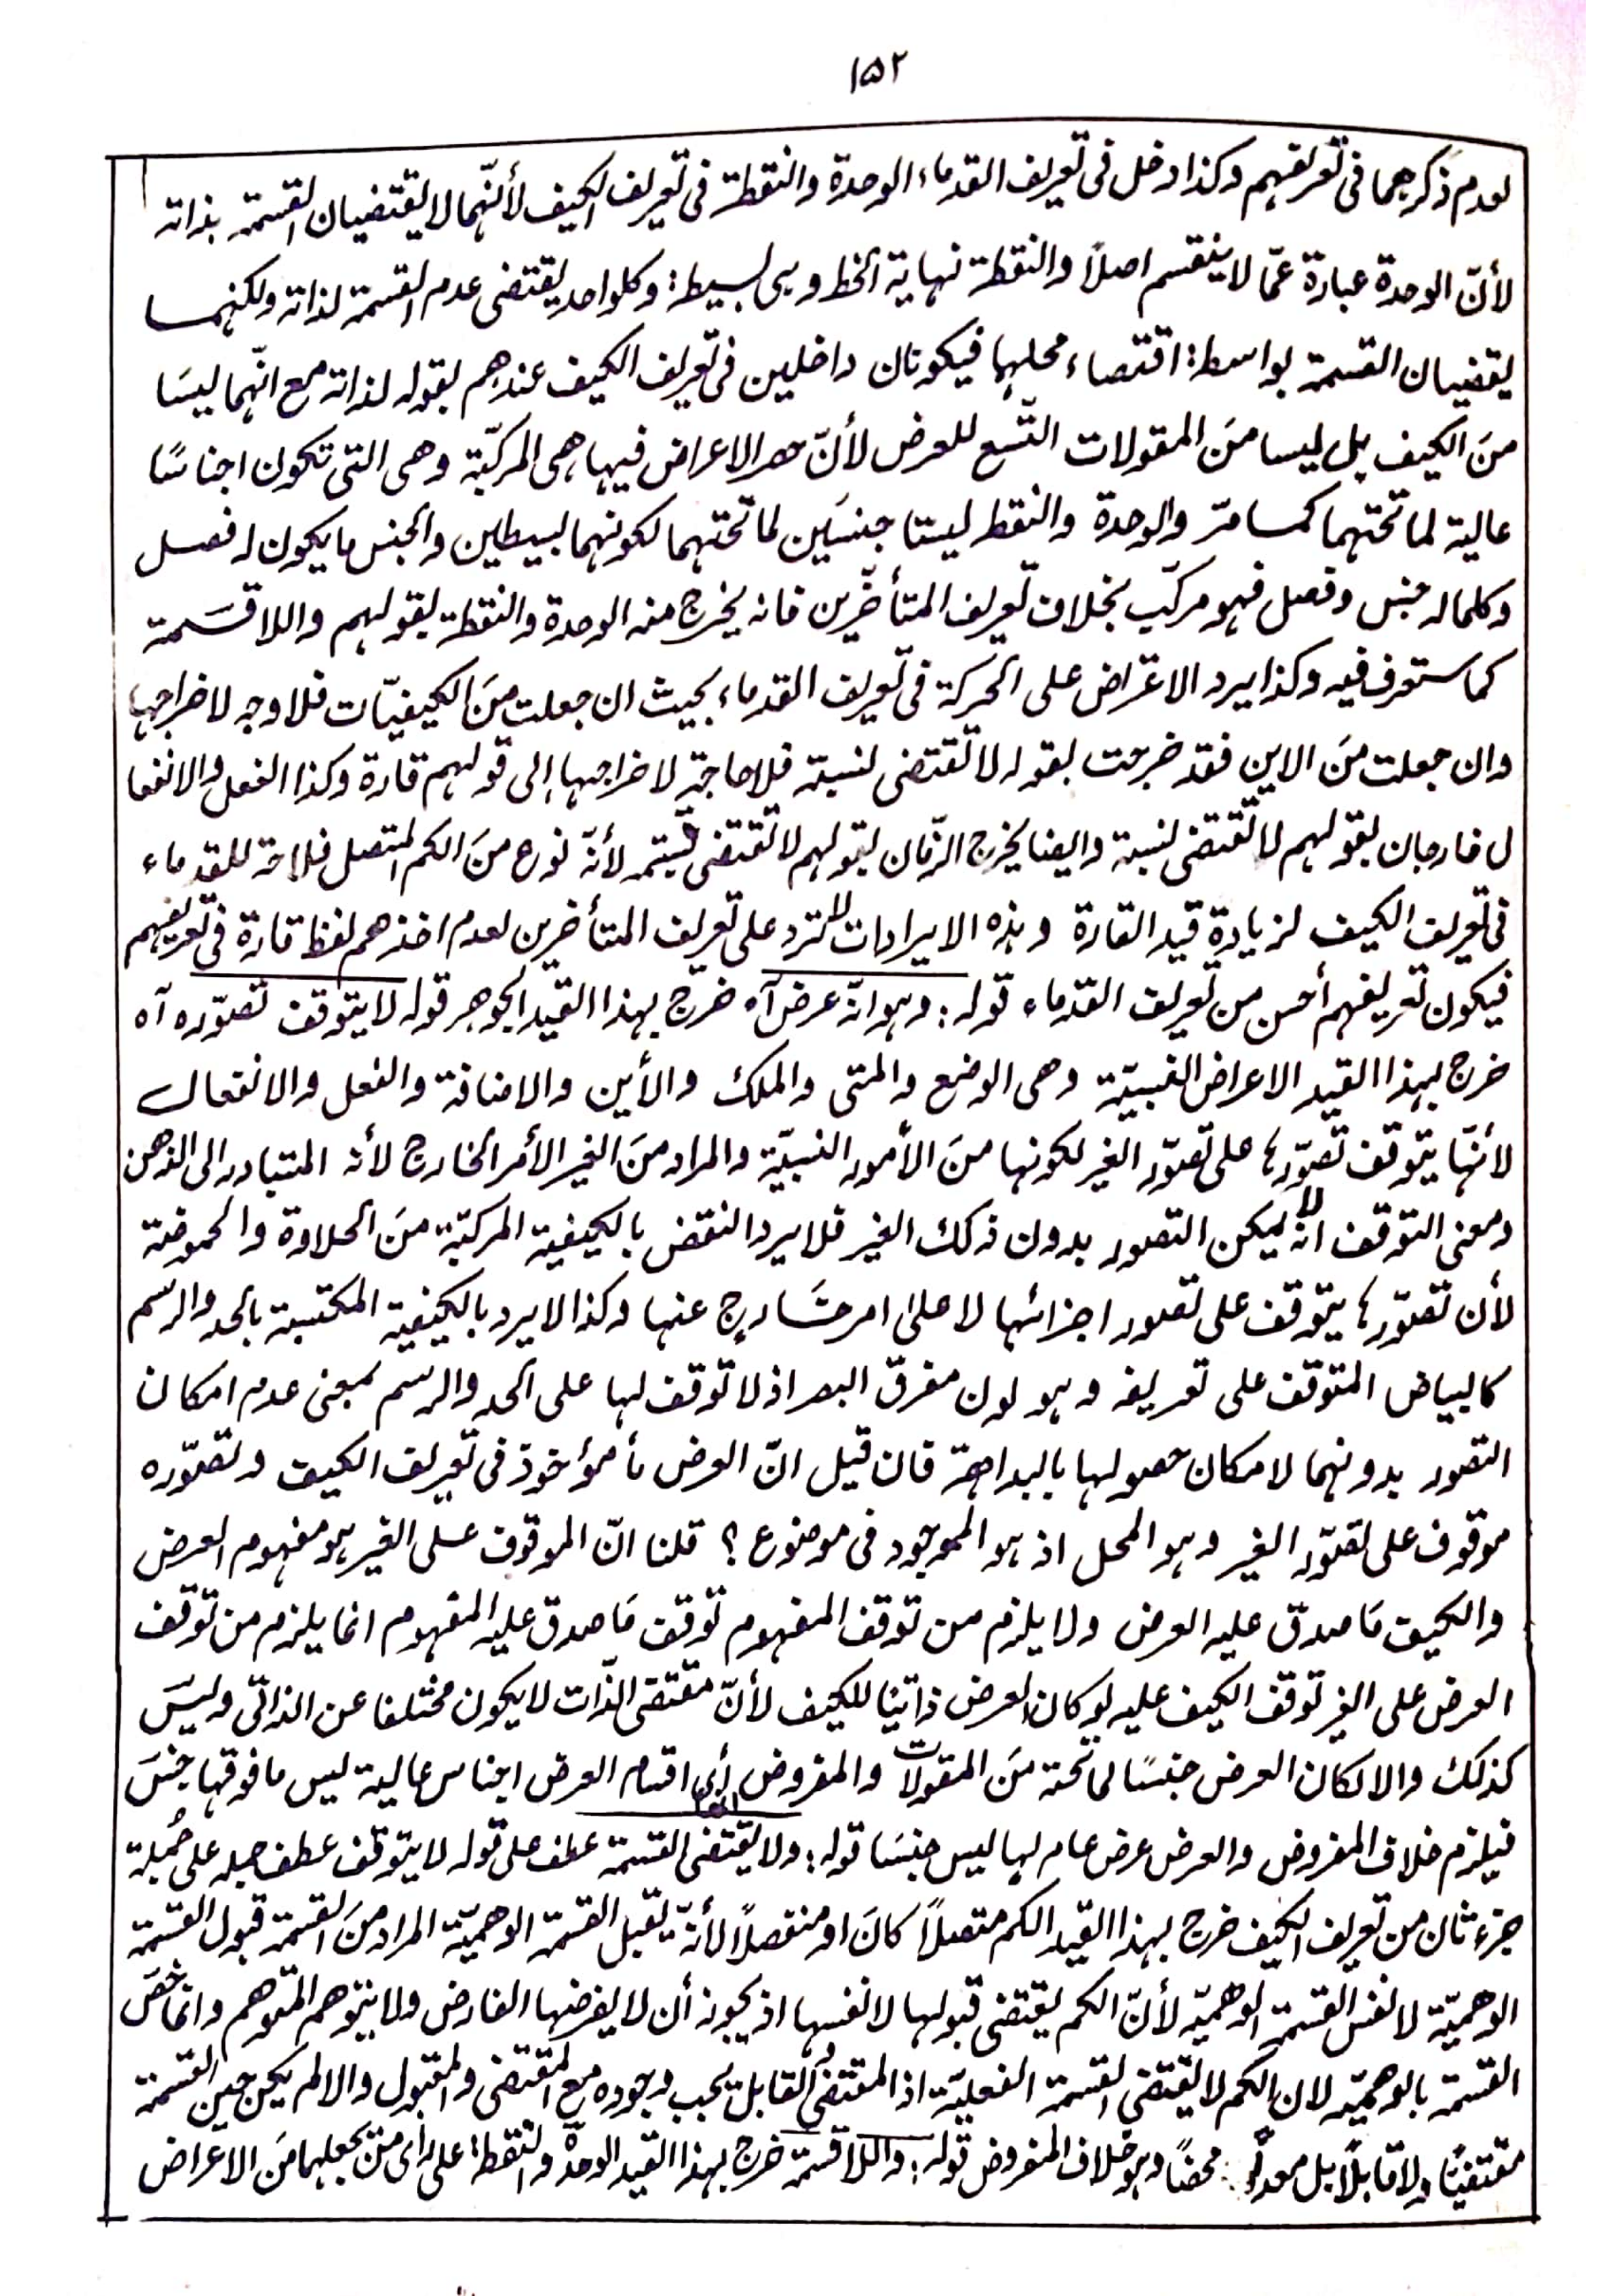 ١٥٢
لعدم ذكرهما فى تعريفهم وكذا دخل فى تعريف القدماء الوحدة والنقطة فى تعريف الكيف لأنّهما لا يقتضيان القسمة بذاته
لأنّ الوحدة عبارة عمّا لا ينقسم اصلاً والنقطة نهاية الخط وهى بسيطة وكلواحد يقتضى عدم القسمة لذاته ولكنهما
يقضيان القسمة بواسطة اقتضاء محلهما فيكونان داخلين فى تعريف الكيف عندهم بقوله لذاته مع انّهما ليسَا
منَ الكيف بل ليسا منَ المقولات التّسع للعرض لأنّ حصر الاعراض فيها هى المركّبة وهى التى تكون اجناسًا
عالية لما تحتهما كمامرّ والوحدة والنقطة ليستا جنسَين لما تحتهما لكونهما بسيطين والجنس ما يكون له فصل
وكلما له جنس وفصل فهو مركّب بخلاف تعريف المتأخّرين فانه يخرج منه الوحدة والنقطة بقولهم واللاقسَمة
كما ستعرف فيه وكذا يرد الاعتراض على الحركة فى تعريف القدماء بحيث ان جعلت منَ الكيفيّات فلا وجه لاخراجها
وان جعلت منَ الاين فقد خرجت بقوله لا تقتضى لنسبة فلا حاجة لاخراجها الى قولهم قارة وكذا الفعل والانفعا
ل خارجان بقولهم لا تقتضى لنسبة وايضا يخرج الزّمان بقولهم لا تقتضى قسمة لأنّه نوع منَ الكم المتصل فلا حاجة للقدماء
فى تعريف الكيف لزيادة قيد القارة وهذه الايرادات لا ترد على تعريف المتأخرين لعدم اخذهم لفظ قارة فى تعريفهم
فيكون تعريفهم أحسن من تعريف القدماء قوله: وهو انّه عرض آه خرج بهذا القيد الجوهر قوله لا يتوقف تصوّره آه
خرج بهذا القيد الاعراض النسبيّة وهى الوضع والمتى والملك والأين والاضافة والفعل والانفعال
لأنّها يتوقف تصوّرها على تصوّر الغير لكونها منَ الأمور النسبيّة والمراد منَ الغير الأمر الخارج لأنه المتبادر الى الذهن
ومعنى التوقف انّه لا يمكن التصور بدون ذلك الغير فلا يرد النقض بالكيفية المركبّة منَ الحلاوة والحموضة
لأن تصوّرها يتوقف على تصور اجزائها لا على امر خَارجٍ عنها وكذا لا يرد بالكيفية المكتسبة بالحد والرسم
كالبياض المتوقف على تعريفه وهو لون مفرق البصر اذ لا توقف لها على الحد والرسم بمعنى عدم امكان
التصور بدونهما لامكان حصولها بالبداهة فان قيل انّ العرض مأخوذ فى تعريف الكيف وتصوّره
موقوف على تصوّر الغير وهو المحل اذ هو الموجود فى موضوع ؟ قلنا انّ الموقوف على الغير هو مفهوم العرض
والكيف مَا صدق عليه العرض ولا يلزم من توقف المفهوم توقف مَا صدق عليه المفهوم انما يلزم من توقف
العرض على الغير توقف الكيف عليه لو كان العرض ذاتيا للكيف لأنّ مقتضى الذّات لا يكون مختلفا عن الذاتى وليسَ
كذلك والا لكان العرض جنسًا لما تحته منَ المقولات والمفروض أى اقسام العرض اجناس عالية ليس ما فوقها جنسَ
فيلزم خلاف المفروض والعرض عرض عام لها ليس جنسَا قوله: ولا يقتضى القسمة عطف على قوله لا يتوقف عطف جمله على جُملة
جزء ثان من تعريف الكيف خرج بهذا القيد الكم متصلاً كانَ او منفصلاً لأنّه يقبل القسمة الوهميّة المراد منَ القسمة قبول القسمة
الوهميّة لا نفس القسمة الوهميّه لأنّ الكم يقتضى قبولها لا نفسها اذ يجوز أن لا يفرضها الفارض ولا يتوهم المتوهم وانما خصّ
القسمة بالوهميّه لان الكم لا يقتضى القسمة الفعليّة اذ المقتضى القابل يجب وجوده مع المقتضى والمقبول والا لم يكن حين القسمة
مقتضيًا ولا قابلاً بل معدًّا محضًا وهو خلاف المفروض قوله: واللاقسمة خرج بهذا القيد الوحدة والنقطة على رأى من يجعلهما منَ الاعراض